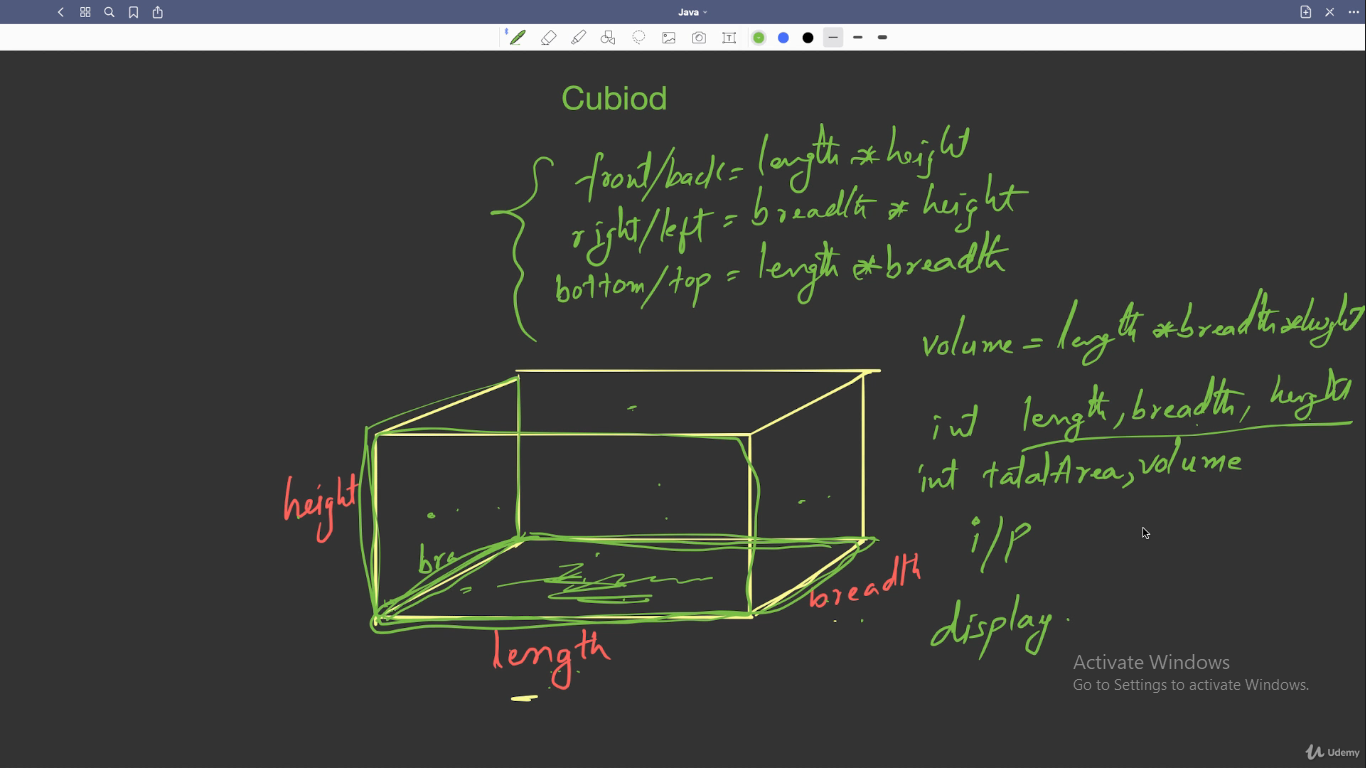 Java
T
Cubiod
front/back = length * height
right/left = breadth * height
bottom/top = length * breadth
volume = length * breadth * height
int length, breadth, height
int tatalArea, volume
height
bre
i/p
breadth
display.
length
Activate Windows
Go to Settings to activate Windows.
Udemy